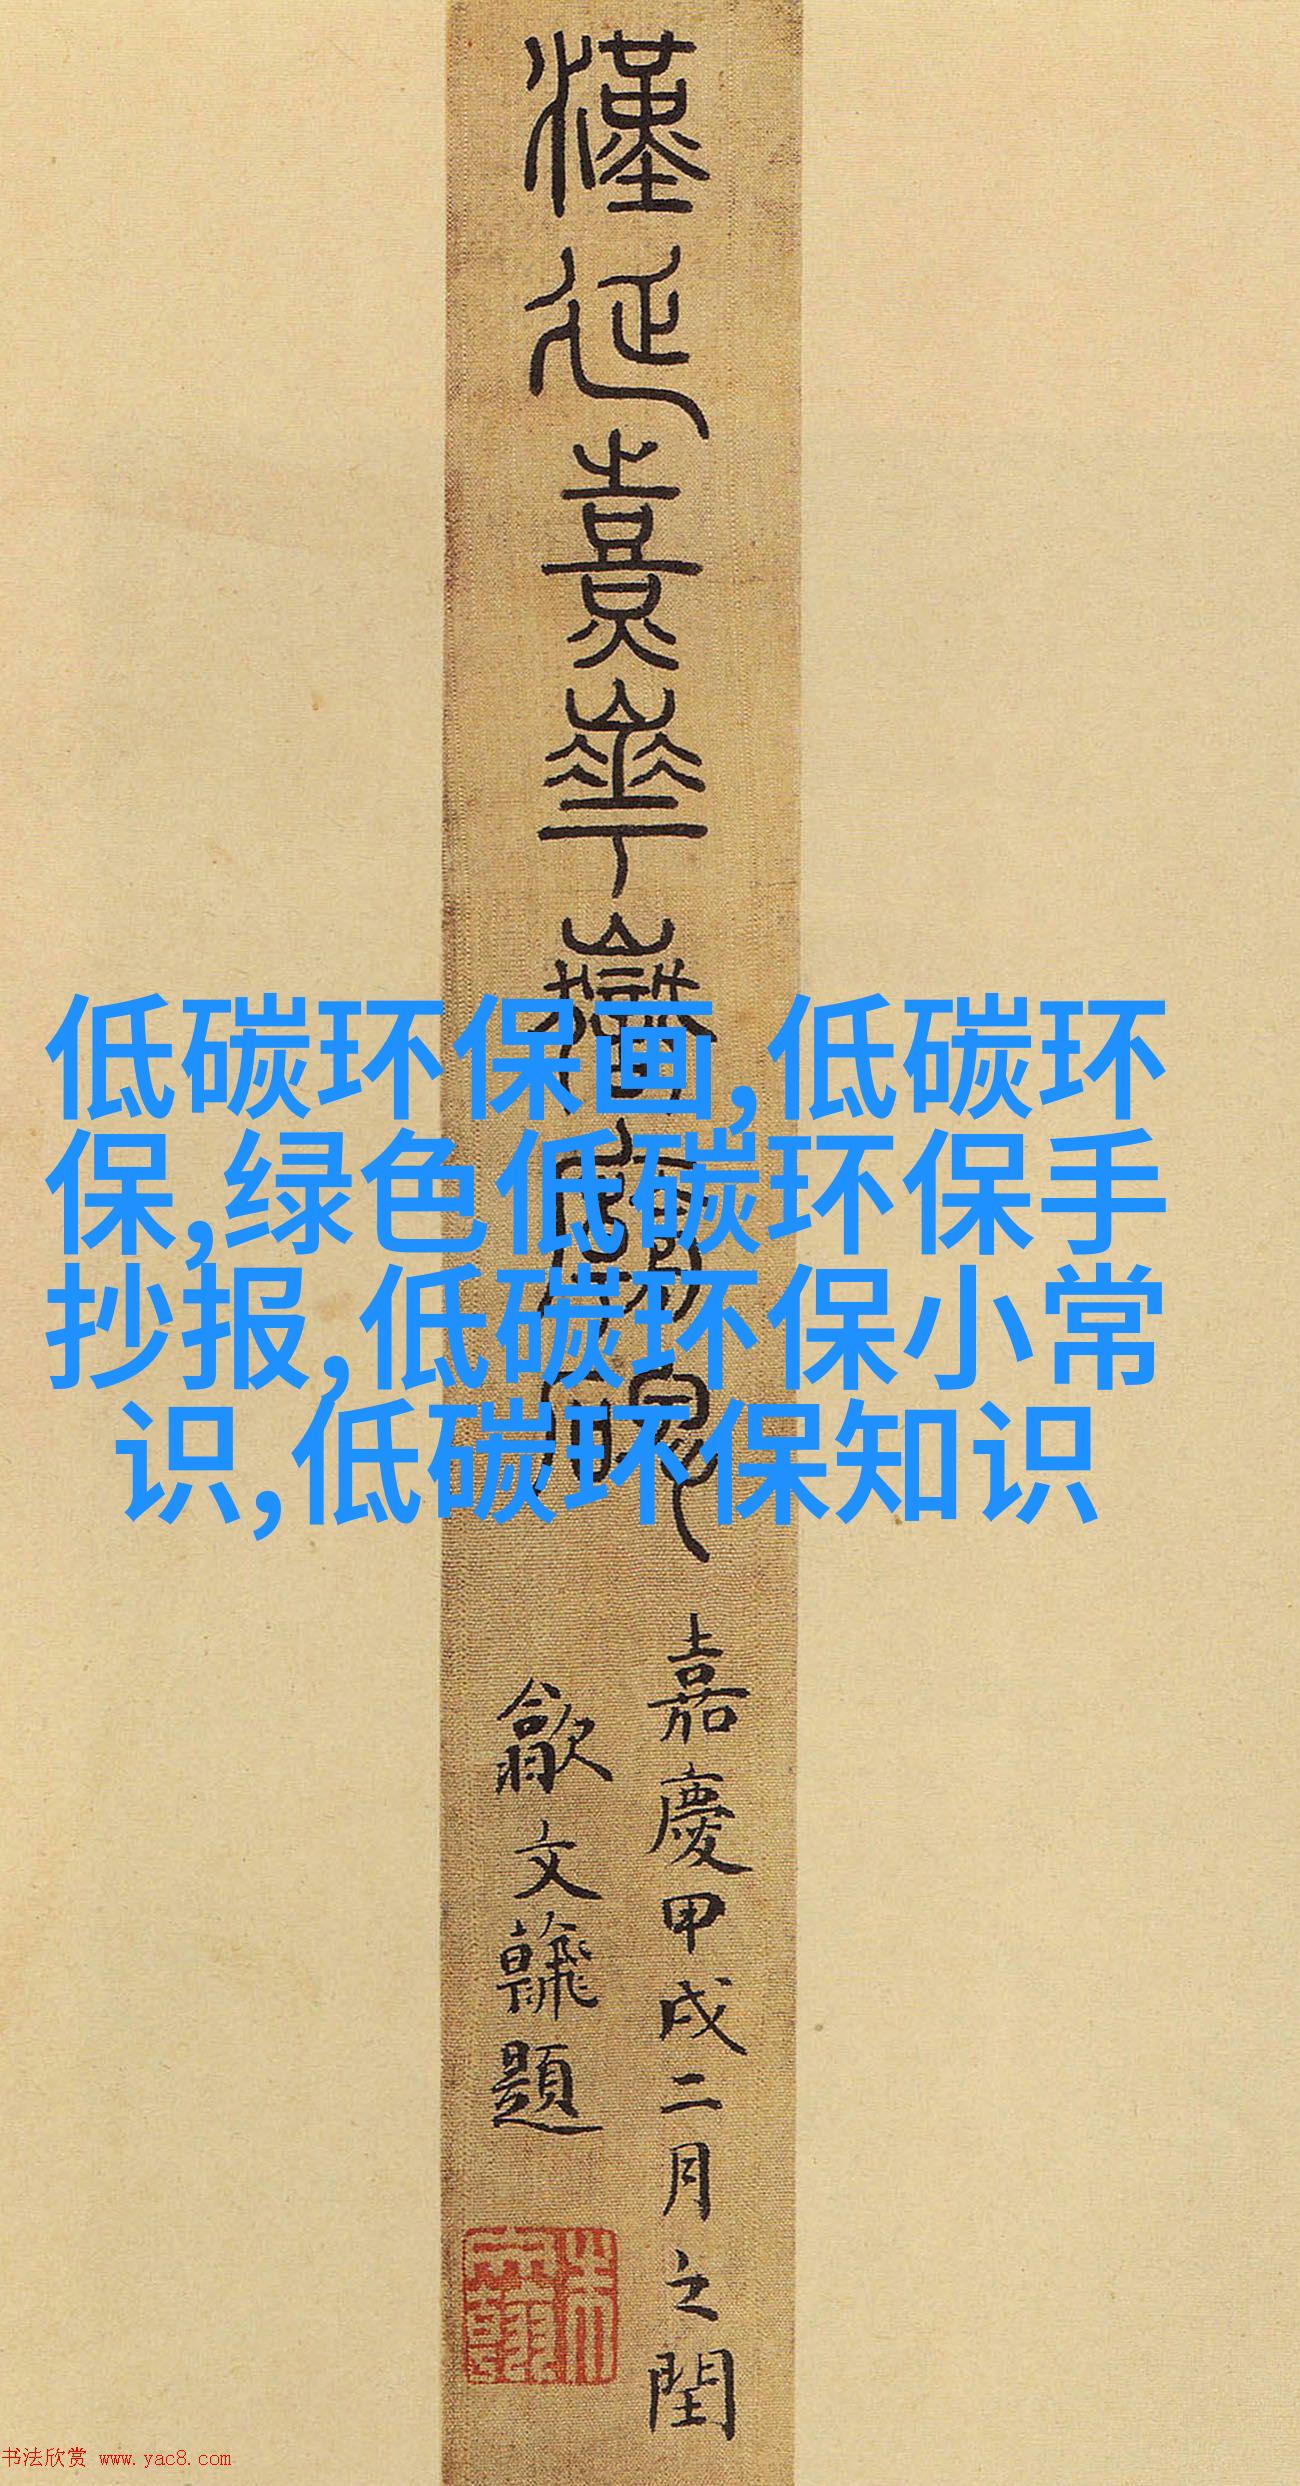 漢延熹華嶽廟
低碳环保画,低碳环
保,绿色低碳环保手
抄报,低碳环保小常
识,低碳环保知识
嘉慶甲戌二月之閏
歙文題
书法欣赏 www.yac8.com